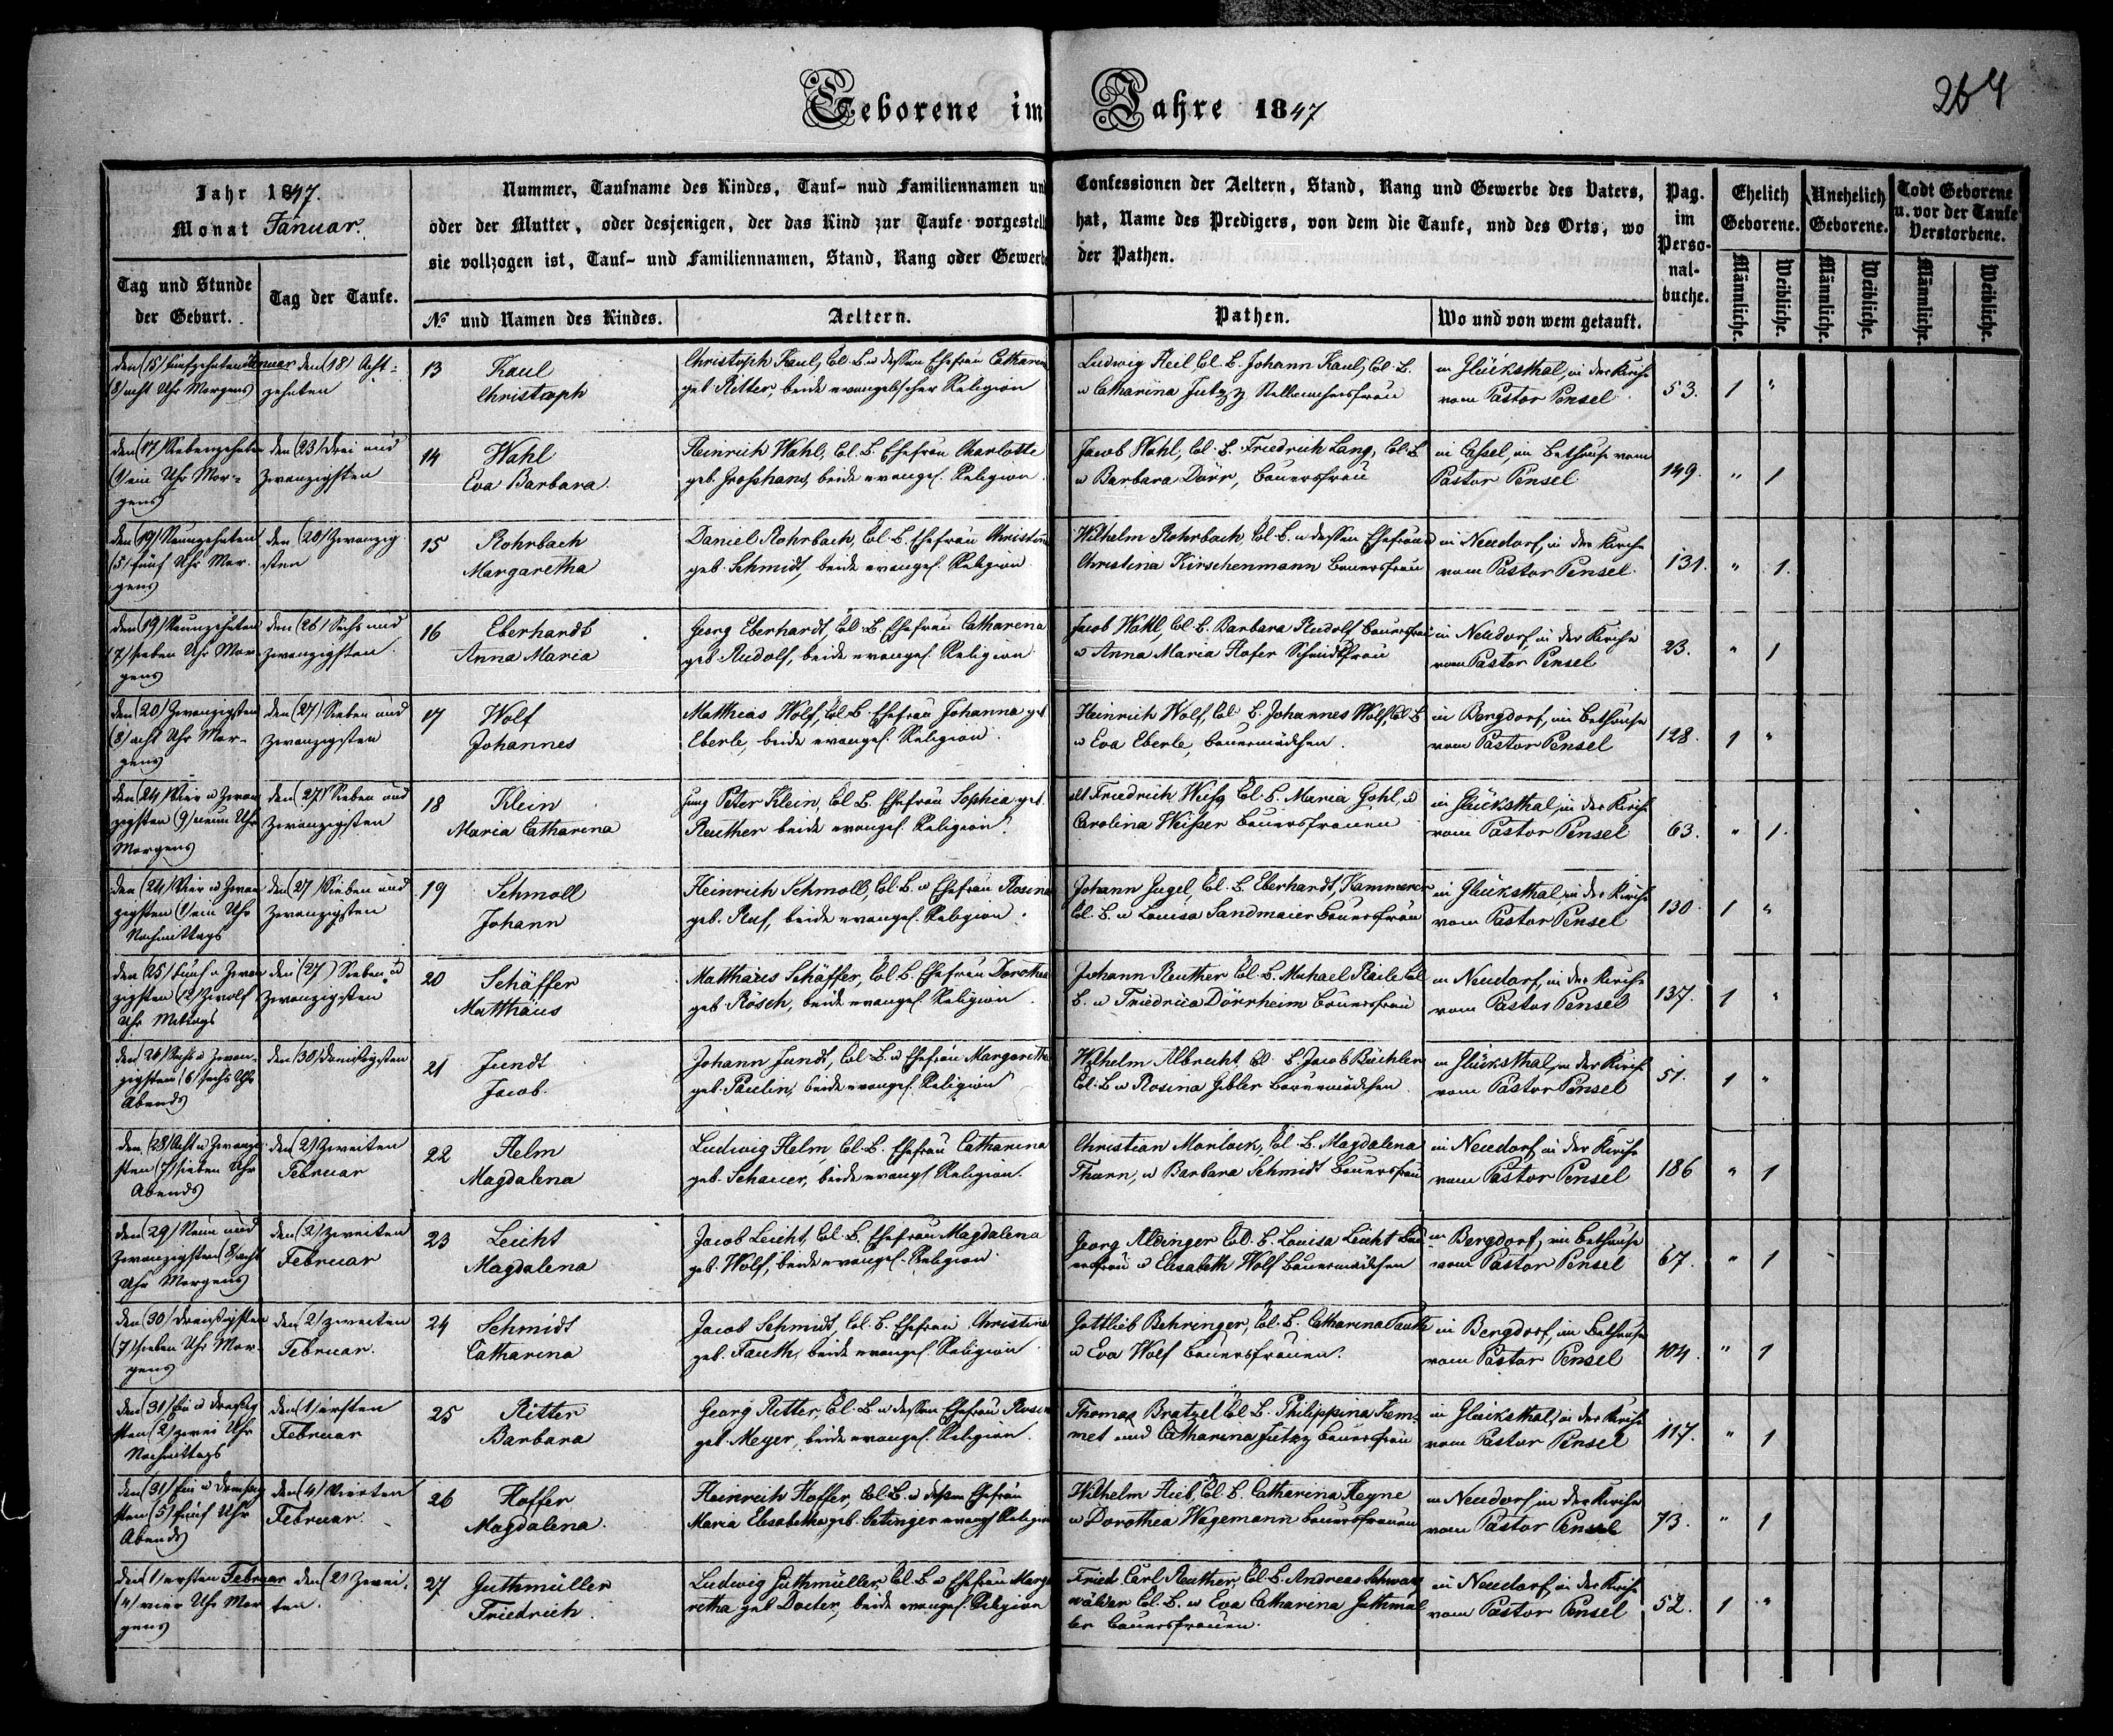 Geborene im Jahre 1847
264
Jahr 1847.
Monat Januar.
Nummer, Taufname des Kindes, Tauf- nud Familiennamen und Confessionen der Aeltern, Stand, Rang und Gewerbe des Vaters,
oder der Mutter, oder desjenigen, der das Kind zur Taufe vorgestellt hat, Name des Predigers, von dem die Taufe, und des Orts, wo
sie vollzogen ist, Tauf- und Familiennamen, Stand, Rang oder Gewerbe der Pathen.
Pag. im Perso-nal-buche.
Ehelich Geborene.
Unehelich Geborene.
Todt Geborene u. vor der Taufe Verstorbene.
Tag und Stunde der Geburt.
Tag der Taufe.
№ und Namen des Kindes.
Aeltern.
Pathen.
Wo und von wem getauft.
Männliche. Weibliche. Männliche. Weibliche. Männliche. Weibliche.
den (15) fünfzehnten Januar
(8) acht Uhr Morgens
den (18) Acht-
zehnten
13 Kaul
Christoph
Christoph Kaul, Col. L. u dessen Ehefrau Catharina
geb. Ritter, beide evangelischer Religion
Ludwig Heil Col. L. Johann Kaul, Col. L.
u Catharina Jutzy
in Glücksthal, in der Kirche
vom Pastor Pensel
53. 1 "
den (17) Siebenzehnten
(1) ein Uhr Mor-
gens
den (23) Drei und
Zwanzigsten
14 Wahl
Eva Barbara.
Heinrich Wahl, Col. L. Ehefrau Charlotte
geb. Grosshans, beide evangel. Religion.
Jacob Wahl, Col. L. Friedrich Lang, Col. L
u Barbara Dörr, Bauersfrau
in Cassel, im Bethause vom
Pastor Pensel
149. " 1
den (19) Neunzehnten
(5) fünf Uhr Mor-
gens
den (20) Zwanzig
sten
15 Rohrbach
Margaretha
Daniel Rohrbach, Col. L. Ehefrau Christina
geb. Schmidt, beide evangel. Religion
Wilhelm Rohrbach, Col. L. u dessen Ehefrau
Christina Kirschenmann Bauersfrau
in Neudorf, in der Kirche
vom Pastor Pensel.
131. " 1.
den (19) Neunzehnten
(7) sieben Uhr Mor-
gens
den (26) Sechs und
zwanzigsten
16 Eberhardt
Anna Maria
Georg Eberhardt, Col. L. Ehefrau Catharina
geb. Rudolf, beide evangel. Religion
Jacob Wahl, Col. L. Barbara Rudolf Bauersfrau
u Anna Maria Hofer Schmidtsfrau
in Neudorf, in der Kirche
vom Pastor Pensel
23. " 1
den (20) Zwanzigsten
(8) acht Uhr Mor-
gens
den (27) Sieben und
zwanzigsten
17 Wolf
Johannes
Matthias Wolf, Col. L. Ehefrau Johanna geb
Eberle, beide evangel. Religion.
Heinrich Wolf, Col. L. Johannes Wolf, Col. L
u Eva Eberle, Bauermädchen.
in Bergdorf, im Bethause
vom Pastor Pensel
128. 1 "
den (24) Vier u Zwan
zigsten (9) neun Uhr
Morgens
den (27) Sieben und
Zwanzigsten
18 Klein
Maria Catharina
jung Peter Klein, Col. L. Ehefrau Sophia geb.
Reuther beide evangel. Religion.
alt Friedrich Weiss Col. L. Maria Gohl, u
Carolina Weisser Bauersfrauen
in Glücksthal, in der Kirche
vom Pastor Pensel
63. " 1.
den (24) Vier u Zwan
zigsten (1) ein Uhr
Nachmittags
den (27) Sieben und
Zwanzigsten
19 Schmoll
Johann
Heinrich Schmoll, Col. L. u Ehefrau Rosina
geb. Ruf, beide evangel. Religion.
Johann Gugel Col. L. Eberhardt, Kammerer
Col. L. u Louisa Sandmaier Bauersfrau
in Glücksthal, in der Kirche
vom Pastor Pensel
130. 1 "
den (25) fünf u Zwan
zigsten (12) Zwölf
Uhr Mittags
den (27) Sieben u
Zwanzigsten
20 Schäffer
Matthäus
Matthäus Schäffer, Col. L. Ehefrau Dorothea
geb. Rösch, beide evangel. Religion.
Johann Reuther Col. L. Michael Raile Col
L. u Friedrica Dörrheim Bauersfrau
in Neudorf, in der Kirche
vom Pastor Pensel
137. 1 "
den (26) Sechs u Zwan-
zigsten (6) sechs Uhr
Abends
den (30) Dreissigsten
21 Jundt
Jacob.
Johann Jundt, Col. L. u Ehefrau Margaretha
geb. Paulin, beide evangel. Religion
Wilhelm Albrecht Col. L. Jacob Büchler
Col. L. u Rosina Gebler Bauermädchen
in Glücksthal, in der Kirche
vom Pastor Pensel
51. 1 "
den (28) Acht u Zwanzig
sten (7) sieben Uhr
Abends
den (2) Zweiten
Februar
22 Helm
Magdalena
Ludwig Helm, Col. L. Ehefrau Catharina
geb. Schauer, beide evangel. Religion.
Christian Morlock, Col. L. Magdalena
Thurn, u Barbara Schmidt Bauersfrau
in Neudorf, in der Kirche
vom Pastor Pensel
186 " 1
den (29) Neun und
Zwanzigsten (8) acht
Uhr Morgens
den (2) zweiten
Februar
23 Leicht
Magdalena
Jacob Leicht, Col. L. Ehefrau Magdalena
geb. Wolf, beide evangel. Religion.
Georg Aldinger Col. L. Louisa Leicht Bau
ersfrau u Elisabeth Wolf Bauermädchen
in Bergdorf, im Bethause
vom Pastor Pensel
67. " 1
den (30) Dreissigsten
(7) sieben Uhr Mor-
gens
den (2) zweiten
Februar.
24 Schmidt
Catharina
Jacob Schmidt, Col. L. Ehefrau Christina
geb. Fauth, beide evangel. Religion
Gottlieb Behringer, Col. L. Catharina Fauth
u Eva Wolf Bauersfrauen.
in Bergdorf, im Bethause
vom Pastor Pensel
104. " 1
den (31) Ein u Dreissig
sten (2) zwei Uhr
Nachmittags
den (1) ersten
Februar
25 Ritter
Barbara
Georg Ritter, Col. L. u dessen Ehefrau Rosina
geb. Meyer, beide evangel. Religion.
Thomas Bratzel Col. L. Philippina Kem-
met und Catharina Jutzy Bauersfrau
in Glücksthal, in der Kirche
vom Pastor Pensel
117. " 1
den (31) Ein u Dreissig
sten (5) fünf Uhr
Abends
den (4) Vierten
Februar.
26 Hoffer
Magdalena.
Heinreich Hoffer, Col. L. u dessen Ehefrau
Maria Elisabetha geb. Oetinger evangl. Religion
Wilhelm Hieb, Col. L. Catharina Heyne
u Dorothea Wagemann Bauersfrauen
in Neudorf, in der Kirche
vom Pastor Pensel
73. " 1
den (1) ersten Februar
(4) vier Uhr Mor
gens
den (2) Zwei-
ten.
27 Guthmüller
Friedrich.
Ludwig Guthmüller, Col. L. u Ehefrau Marga
retha geb. Docter, beide evangel. Religion
Fried. Carl Reuther, Col. L. Andreas Schwarz
wälder Col. L. u Eva Catharina Guthmül
ler Bauersfrauen.
in Neudorf, in der Kirche
vom Pastor Pensel
52. 1 "